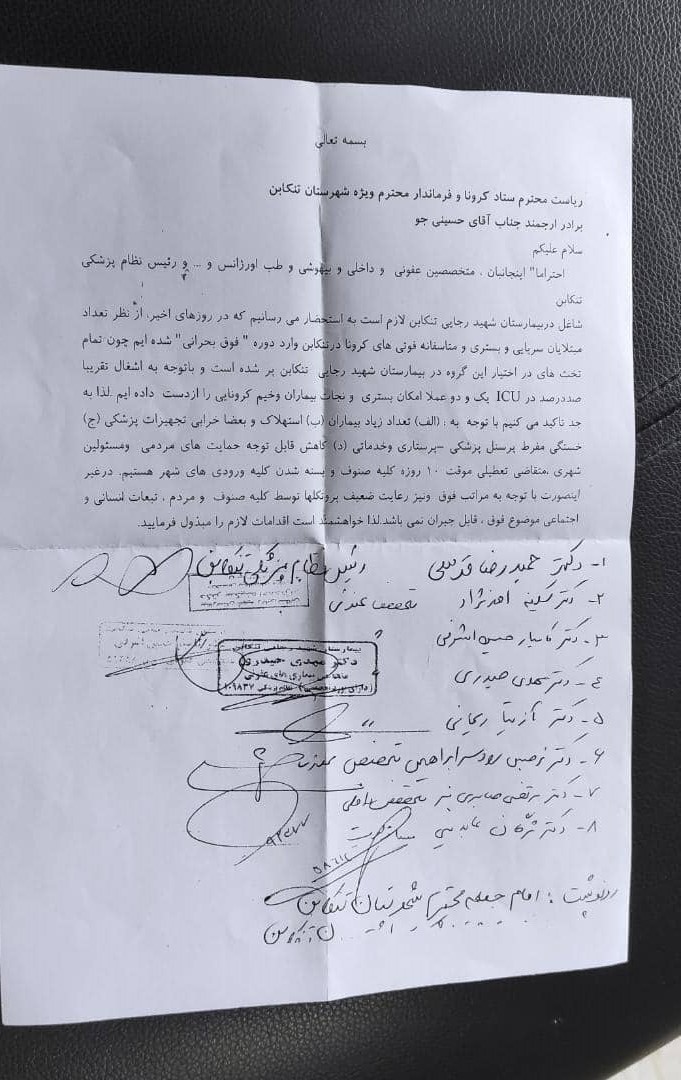 بسمه تعالی
ریاست محترم ستاد کرونا و فرماندار محترم ویژه شهرستان تنکابن
برادر ارجمند جناب آقای حسینی جو
سلام علیکم
احتراما" اینجانبان ، متخصصین عفونی و داخلی و بیهوشی و طب اورژانس و ... و رئیس نظام پزشکی
تنکابن
شاغل دربیمارستان شهید رجایی تنکابن لازم است به استحضار می رسانیم که در روزهای اخیر، از نظر تعداد
مبتلایان سرپایی و بستری و متاسفانه فوتی های کرونا درتنکابن وارد دوره " فوق بحرانی" شده ایم چون تمام
تخت های در اختیار این گروه در بیمارستان شهید رجایی تنکابن پر شده است و باتوجه به اشغال تقریبا
صددرصد در ICU یک و دو عملا امکان بستری و نجات بیماران وخیم کرونایی را ازدست داده ایم .لذا به
جد تاکید می کنیم با توجه به : (الف) تعداد زیاد بیماران (ب) استهلاک و بعضا خرابی تجهیزات پزشکی (ج)
خستگی مفرط پرسنل پزشکی –پرستاری وخدماتی (د) کاهش قابل توجه حمایت های مردمی ومسئولین
شهری ،متقاضی تعطیلی موقت ۱۰ روزه کلیه صنوف و بسته شدن کلیه ورودی های شهر هستیم. درغیر
اینصورت با توجه به مراتب فوق ونیز رعایت ضعیف پروتکلها توسط کلیه صنوف و مردم ، تبعات انسانی و
اجتماعی موضوع فوق ، قابل جبران نمی باشد.لذا خواهشمند است اقدامات لازم را مبذول فرمایید.
۱- دکتر حمید رضا قدسی رئیس نظام پزشکی تنکابن
۲- دکتر سکینه احمدنژاد تخصص عفونی
۳- دکتر کامیار حسین اشرفی "
بیمارستان شهید رجایی تنکابن
دکتر مهدی حیدری
۱۰۹۸۳۷
۴- دکتر مهدی حیدری
۵- دکتر آزیتا ریحانی "
۶- دکتر نرجس رودسرابراهیمی تخصص عفونی
۷- دکتر مرتضی صابری فر تخصص داخلی
۸- دکتر مژگان عابدینی
رونوشت : امام جمعه محترم شهرستان تنکابن